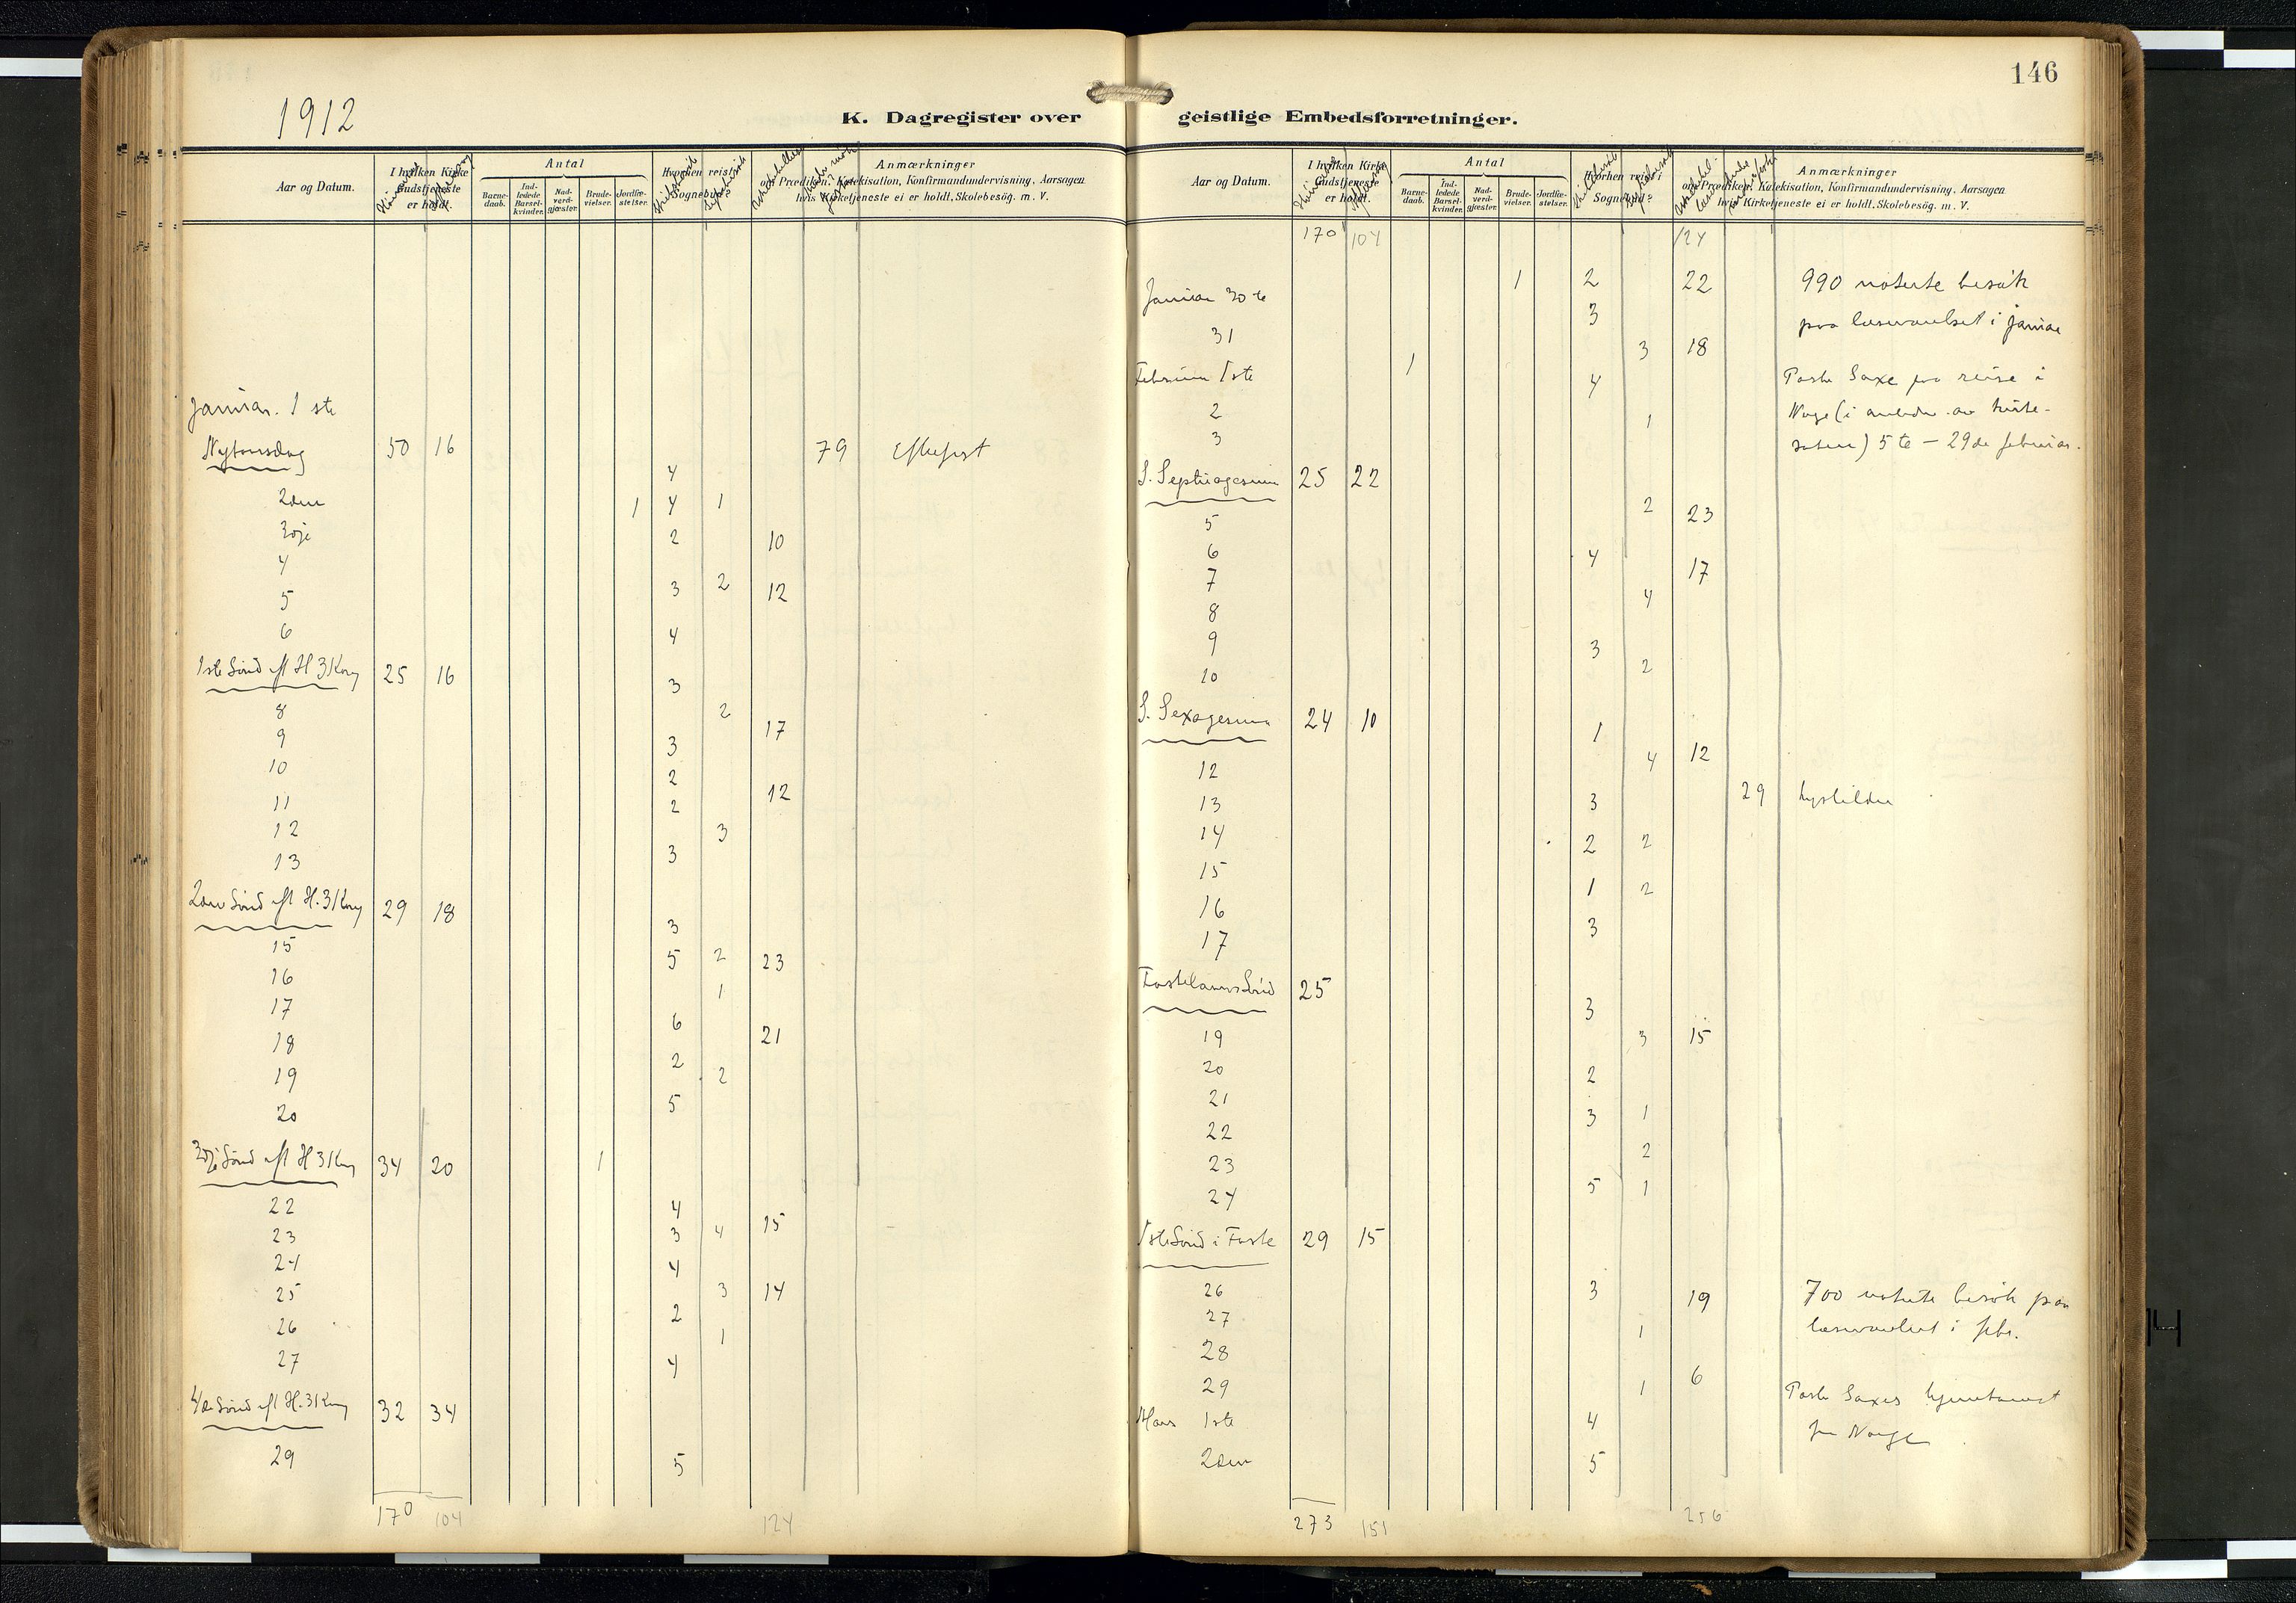 146
1912
K. Dagregister over geistlige Embedsforretninger.
Aar og Datum.
I hvilken Kirke Gudstjeneste er holdt.
Antal
Barne-daab.
Ind-ledede Barsel-kvinder.
Nad-verd-gjæster.
Brude-vielser.
Jordfæ-stelser.
Hvorhen reist i Sognebud?
Anmærkninger
om Prædiken, Katekisation, Konfirmandundervisning, Aarsagen
hvis Kirketjeneste ei er holdt. Skolebesög. m. V.
Januar. 1 ste
Nytaarsdag 50 16 79
4
2den 1 4 1
3dje 2 10
4
5 3 2 12
6 4
1ste Sönd eft H 3 Kong 25 16
3
8 2
9 3 17
10 2
11 2 12
12 3
13 3
2den Sönd eft H. 3 Kong 29 18
3
15 5 2 23
16 1
17 6
18 21
19 2 2
20 5
3dje Sönd eft H 3 Kong 34 20 1
22 4
23 3 4 15
24 4
25 3 14
26 2 1
27 4
4de Sönd eft H. 3 Kong 32 34
29 5
170 104 124
Aar og Datum.
I hvilken Kirke Gudstjeneste er holdt.
Antal
Barne-daab.
Ind-ledede Barsel-kvinder.
Nad-verd-gjæster.
Brude-vielser.
Jordfæ-stelser.
Hvorhen reist i Sognebud?
Anmærkninger
om Prædiken, Katekisation, Konfirmandundervisning, Aarsagen
hvis Kirketjeneste ei er holdt. Skolebesög. m. V.
170 104 124
Januar 30te 1 2 22 990 noterte besök
31 3 paa læseværelset i januar
3 18
Februar 1ste 1 4 Pastor Saxe paa reise i
2 Norge (i
3 1 5te – 29de februar.
S. Septuagesima 25 22
2 23
5
6 4 17
7
8 4
9 3
10 2
S. Sexagesima 24 10
1
12 4 12
13 3 29 Lysbilder
14 2 2
15
16 1 2
17 3
Fastelavns Sönd 25
3
19 3 15
20 2
21 3 1
22
23 2
24 5 1
1ste Sönd i Faste 29 15
26 3 19 700 noterte besök paa
27 1 læseværelset i febr.
28
29 1 6 Pastor Saxes hjemkomst
Mars 1ste 4 fra Norge
2den 5
273 151 256